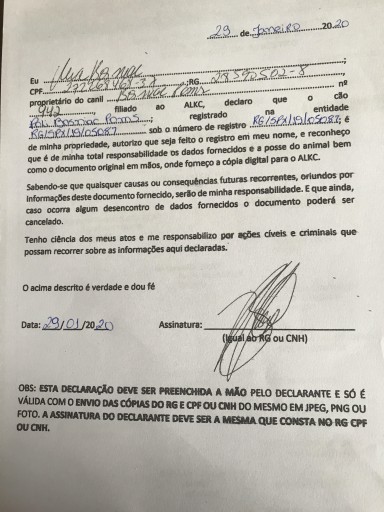 29 de Janeiro 20.20
Eu
CPF ;RG
proprietário do canil nº
942 filiado ao ALKC, declaro que o cão
registrado na entidade
RG/SPX/19/05087 sob o número de registro RG/SPX/19/05087; é
de minha propriedade, autorizo que seja feito o registro em meu nome, e reconheço
que é de minha total responsabilidade os dados fornecidos e a posse do animal bem
como o documento original em mãos, onde forneço a cópia digital para o ALKC.
Sabendo-se que quaisquer causas ou consequências futuras recorrentes, oriundos por
informações deste documento fornecido, serão de minha responsabilidade. E que ainda,
caso ocorra algum desencontro de dados fornecidos o documento poderá ser
cancelado.
Tenho ciência dos meus atos e me responsabilizo por ações cíveis e criminais que
possam recorrer sobre as informações aqui declaradas.
O acima descrito é verdade e dou fé
Data: 29/01/2020 Assinatura:
(Igual ao RG ou CNH)
OBS: ESTA DECLARAÇÃO DEVE SER PREENCHIDA A MÃO PELO DECLARANTE E SÓ É
VÁLIDA COM O ENVIO DAS CÓPIAS DO RG E CPF OU CNH DO MESMO EM JPEG, PNG OU
FOTO. A ASSINATURA DO DECLARANTE DEVE SER A MESMA QUE CONSTA NO RG CPF
OU CNH.